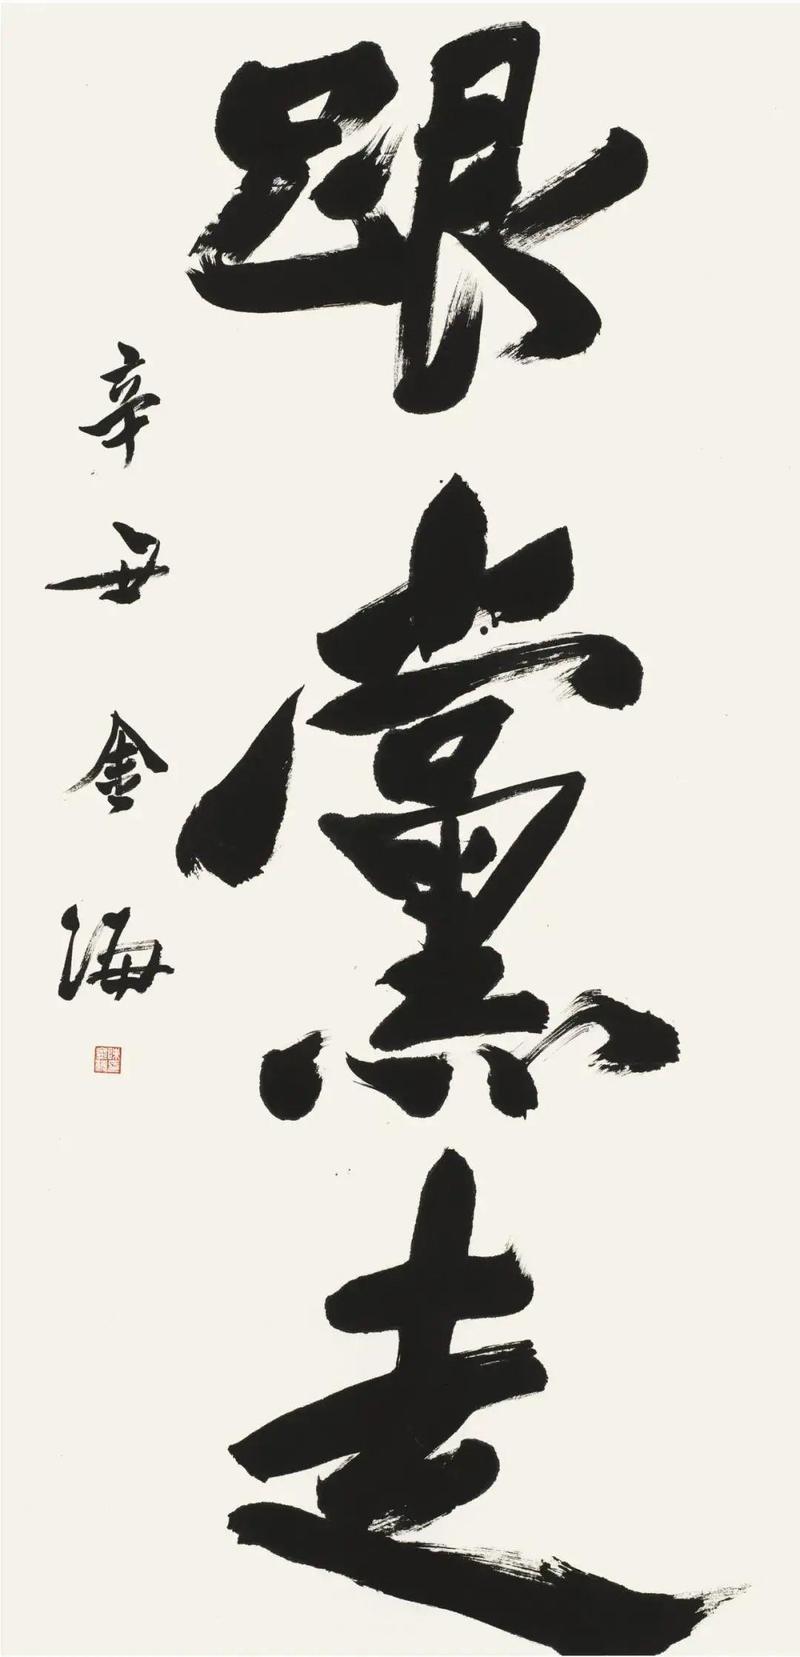 跟黨走
辛丑金海